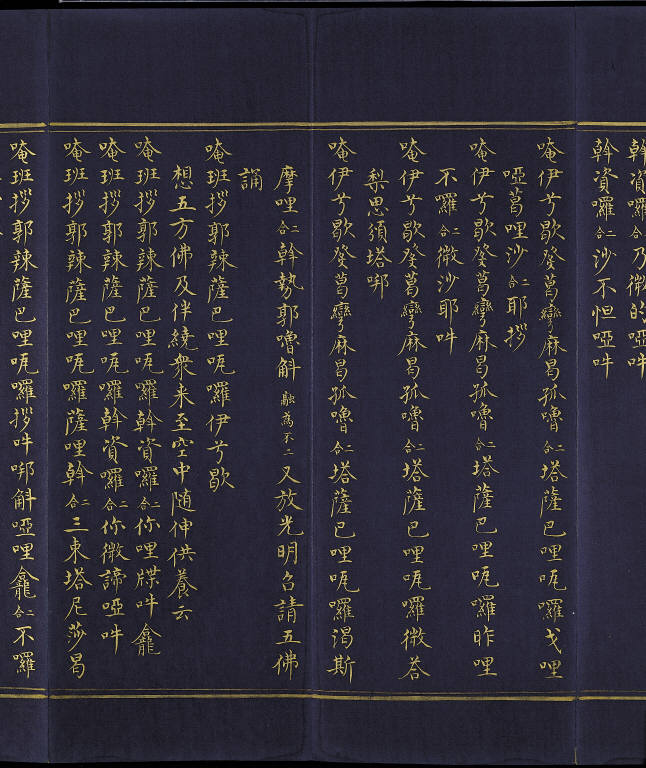 斡資囉二合乃微的啞吽
斡資囉二合沙不怛啞吽
唵伊兮歇癹葛彎麻曷孤嚕二合塔薩巴哩嚩囉戈哩
啞葛哩沙二合耶拶
唵伊兮歇癹葛彎麻曷孤嚕二合塔薩巴哩嚩囉昨哩
不囉二合微沙耶吽
唵伊兮歇癹葛彎麻曷孤嚕二合塔薩巴哩嚩囉微荅
梨思須塔啷
唵伊兮歇癹葛彎麻曷孤嚕二合塔薩巴哩嚩囉渴斯
摩哩二合斡勢郭嚕斛融為不二又放光明召請五佛
誦
唵班拶郭辣薩巴哩嚩囉伊兮歇
想五方佛及伴繞衆来至空中随伸供養云
唵班拶郭辣薩巴哩嚩囉斡資囉二合你哩牒吽龕
唵班拶郭辣薩巴哩嚩囉斡資囉二合你微諦啞吽
唵班拶郭辣薩巴哩嚩囉薩哩斡二合三東塔尼莎曷
唵班拶郭辣薩巴哩嚩囉拶吽啷斛啞哩龕二合不囉